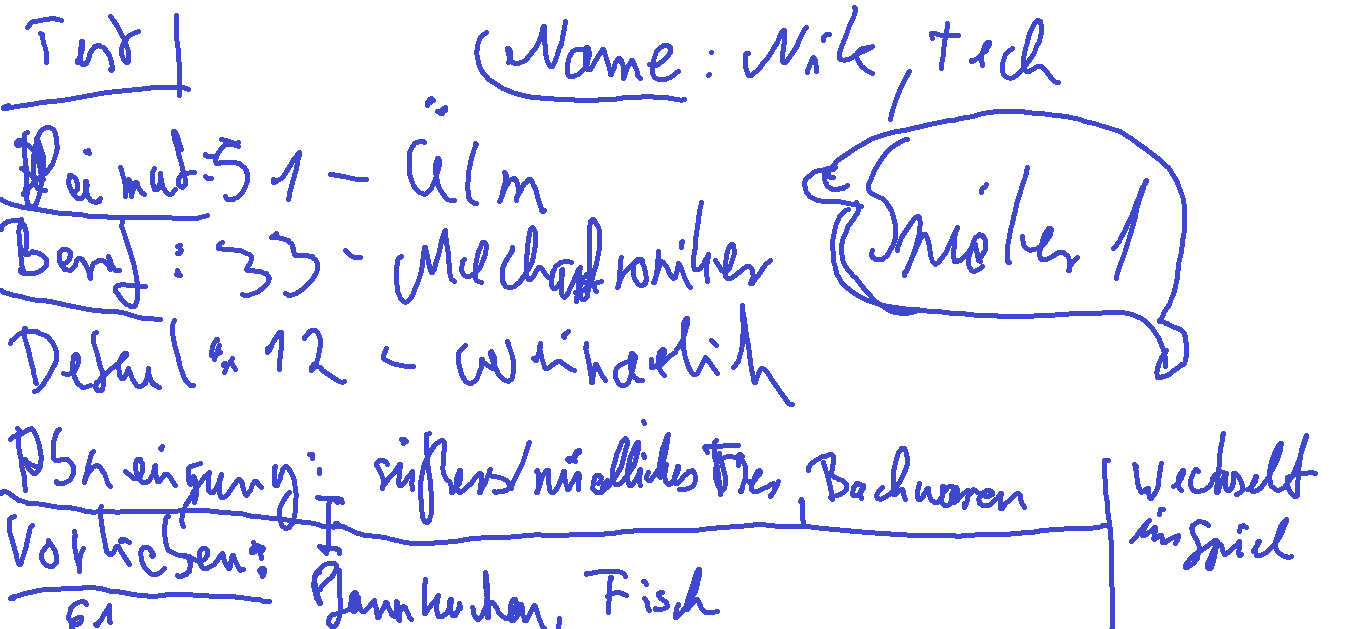 Test
Name: Nik, tech
Heimat: 51 - Älm
Spieler 1
Beruf: 33 - Mechatroniker
Detail: 12 - weinerlich
Abneigung: süßers/niedliches Tier, Backwaren
Wechselt
im Spiel
Vorlieben: Pfannkuchen, Fisch
61